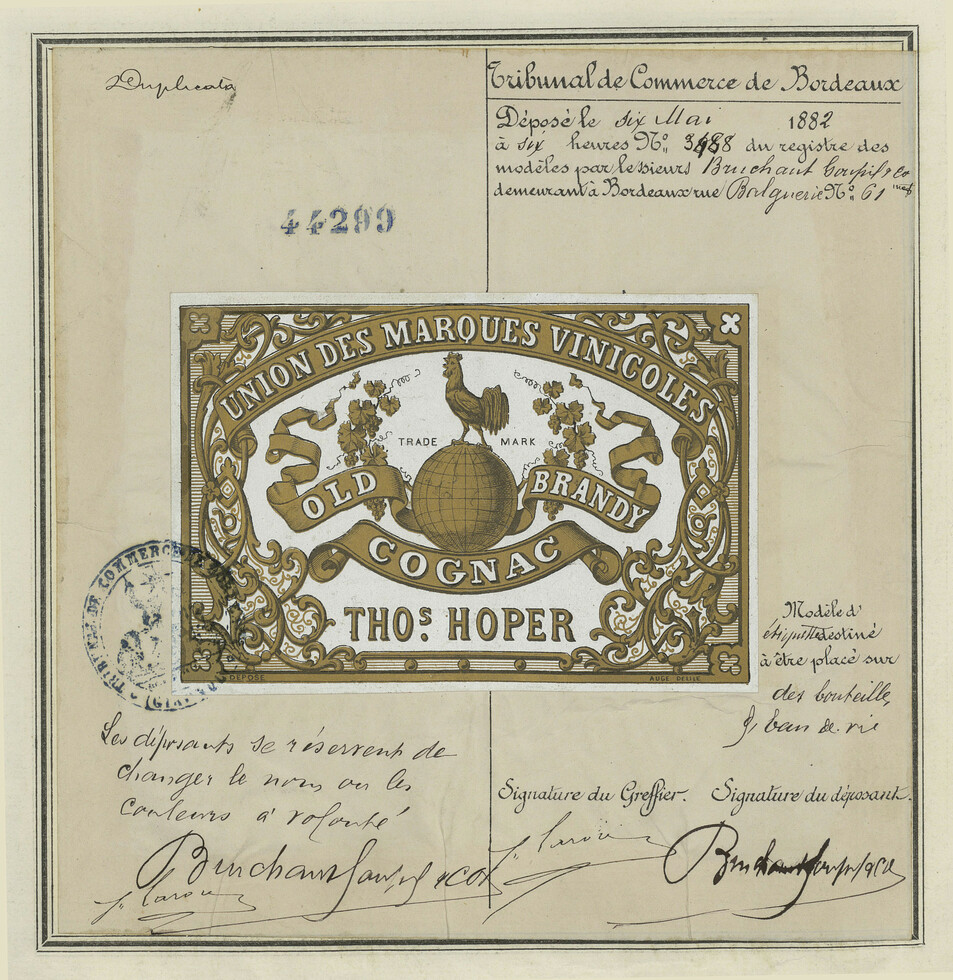 Duplicata
Tribunal de Commerce de Bordeaux
Déposé le six Mai 1882
à six heures No. 3488 du registre des
modèles par le sieurs Bruchaut Goupil & Co
demeurant à Bordeaux rue Balguerie No. 61
44299
UNION DES MARQUES VINICOLES
TRADE MARK
OLD BRANDY
COGNAC
THOS. HOPER
DÉPOSÉ
AUGE DELILE
TRIBUNAL DE COMMERCE DE
Modèle d'
étiquette destiné
à être placé sur
des bouteilles
d'eau de vie
Les déposants se réservent de
changer le nom ou les
couleurs à volonté
Signature du Greffier. Signature du déposant.
Bruchaut Goupil & Co
Bruchaut Goupil & Co